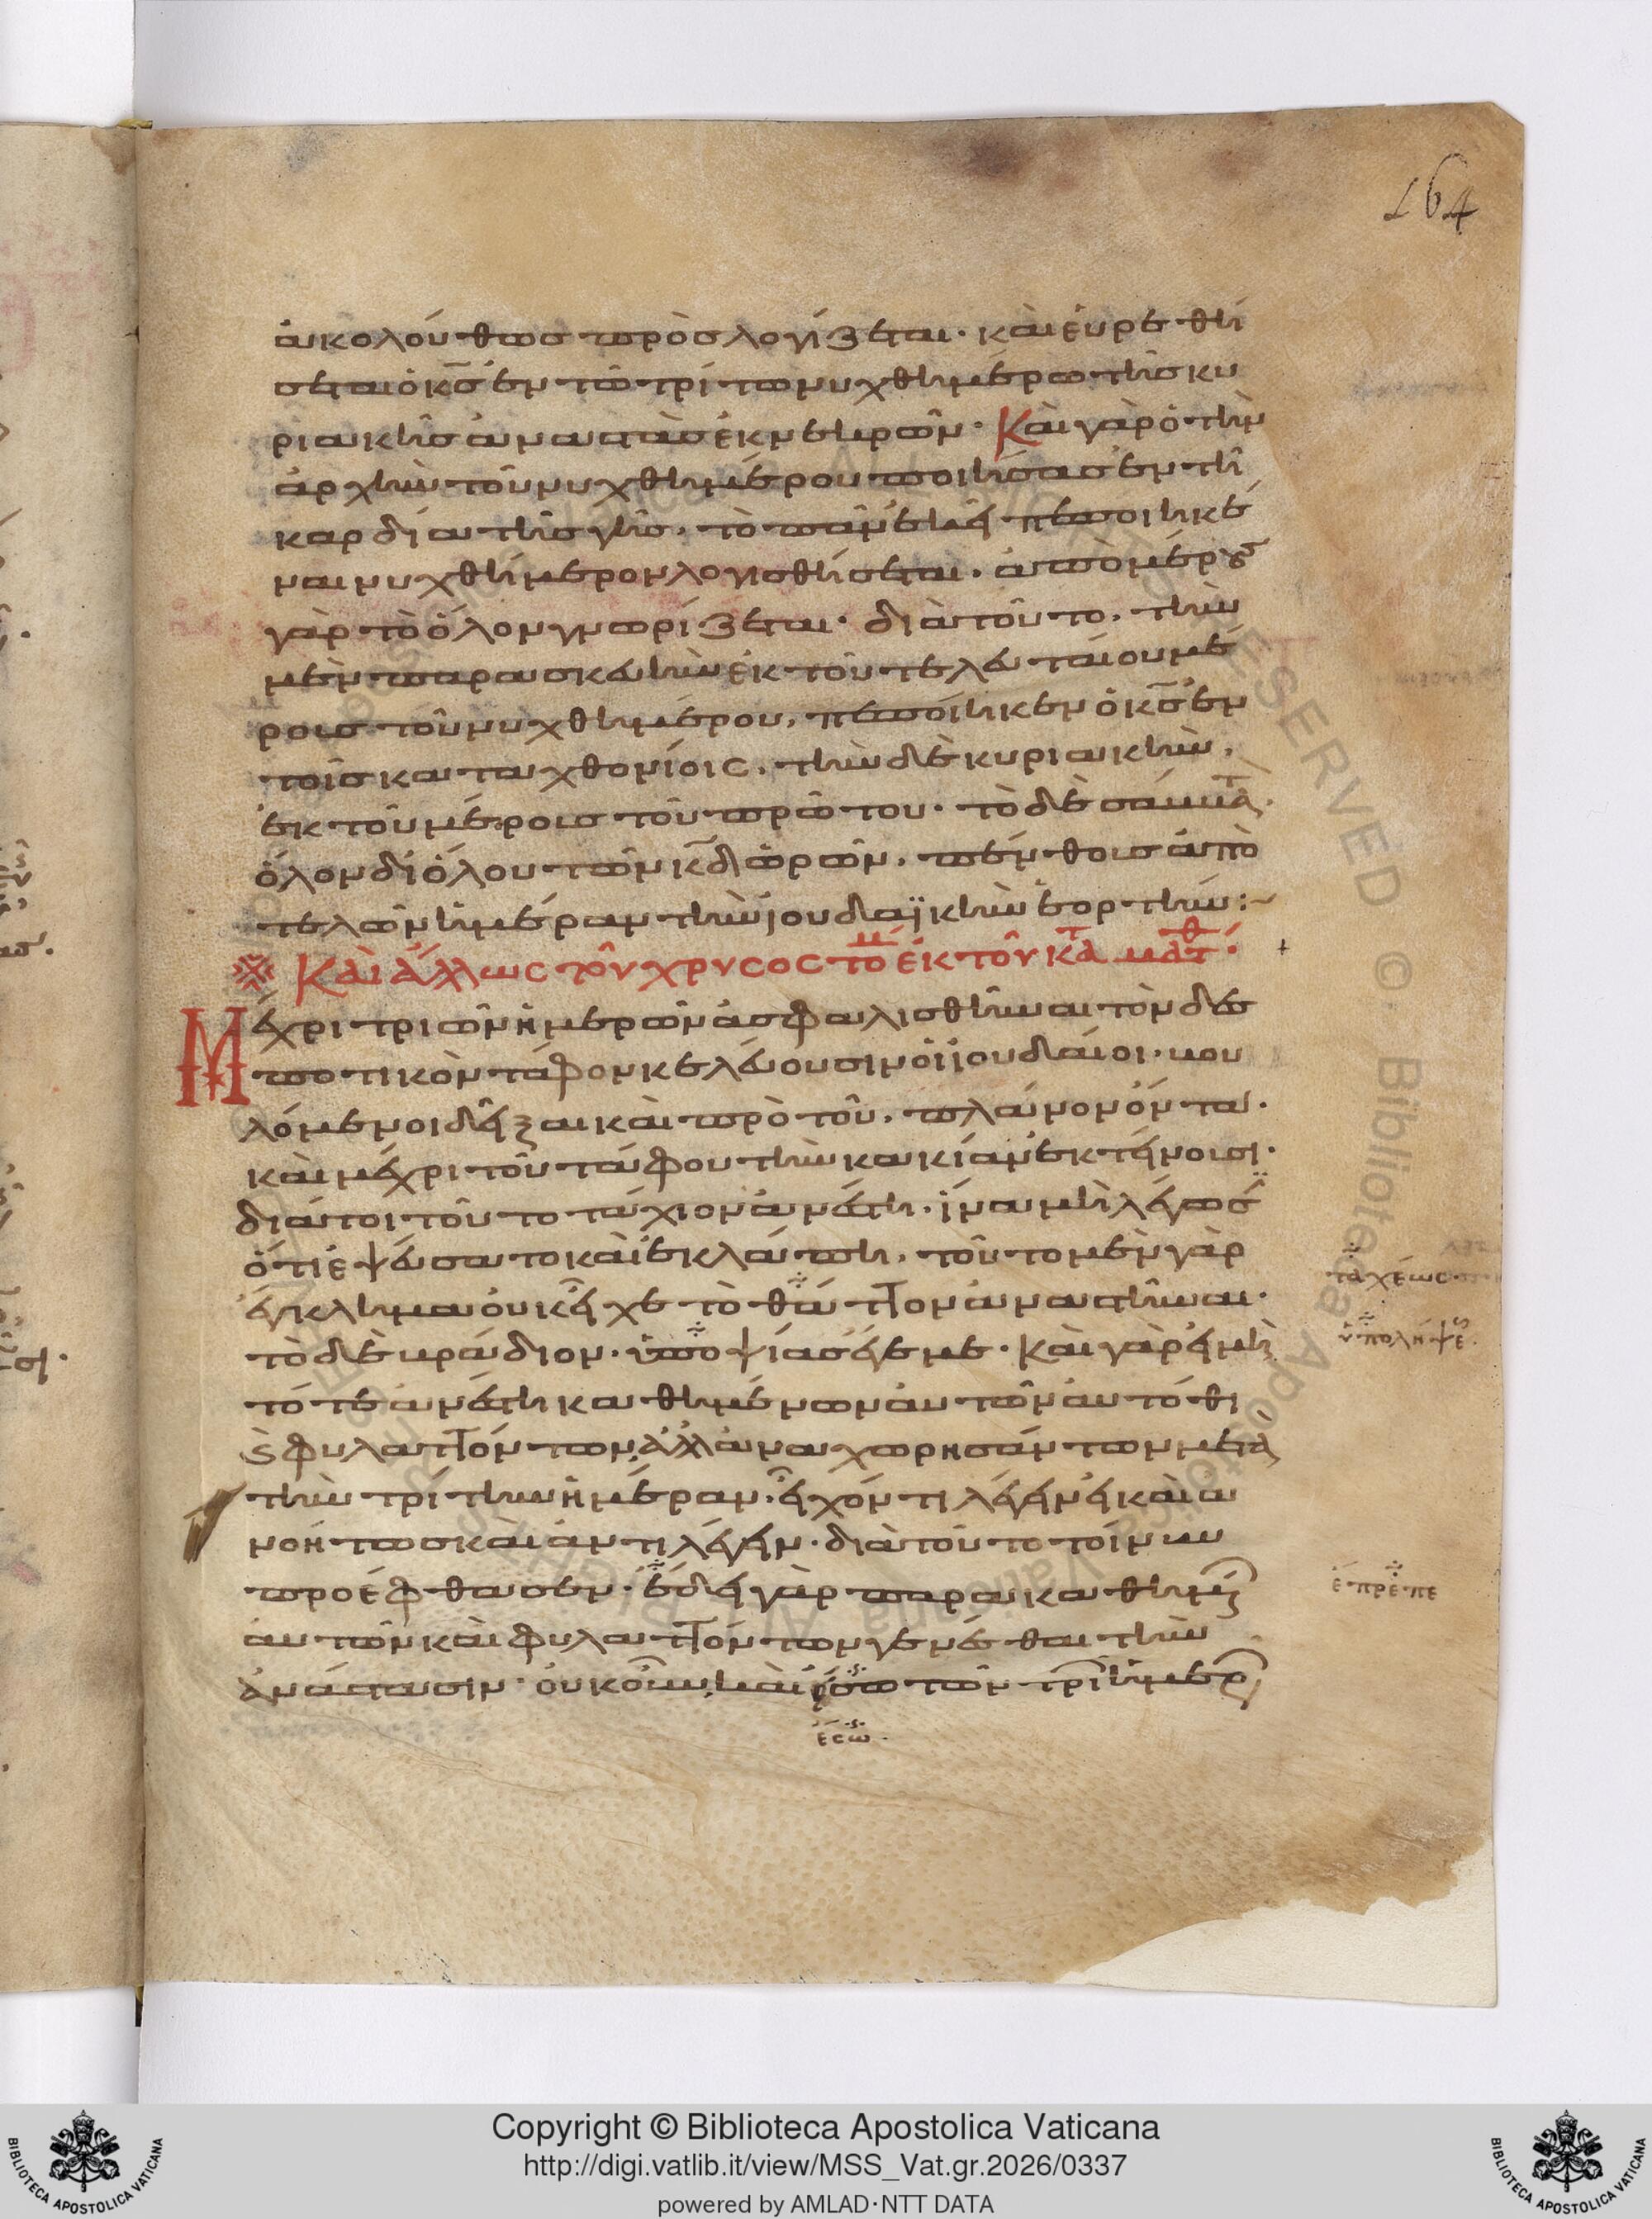 164
ἀκολούθως προσλογίζεται· καὶ εὑρεθή
σεται ὁ κ̅ς̅ ἐν τῶ τρίτω νυχθημέρω τῆς κυ
ριακῆς ἀναστὰς ἐκ νεκρῶν· Καὶ γὰρ ὁ τὴν
ἀρχὴν τοῦ νυχθημέρου ποιήσας ἐν τῆ
καρδία τῆς γῆς, τὸ πᾶν εἰκῆ πεποιηκέ
ναι νυχθήμερον λογισθήσεται. ἀπὸ μέρους
γὰρ τὸ ὅλον γνωρίζεται· διὰ τοῦτο, τὴν
μὲν παρασκευὴν ἐκ τοῦ τελευταίου μέ
ρους τοῦ νυχθημέρου, πεποίηκεν ὁ κ̅ς̅ ἐν
τοῖς καταχθονίοις. τὴν δὲ κυριακὴν,
ἐκ τοῦ μέρους τοῦ πρώτου· τὸ δὲ σάββατ
ὅλον δι ὅλου τῶν κ̅δ̅ ὡρῶν, πένθους ἀπο
τελῶν ἡμέραν τὴν ἰουδαϊκὴν ἑορτήν:~
※ Καὶ ἄλλως τοῦ χρυσοστομ ἐκ τοῦ κατ ματθ·
Μέχρι τριῶν ἡμερῶν ἀσφαλισθῆναι τὸν δεσ
ποτικὸν τάφον κελεύουσιν οἱ ἰουδαῖοι. βου
λόμενοι δεῖξαι καὶ πρὸ τοῦ, πλάνον ὄντα.
καὶ μέχρι τοῦ τάφου τὴν κακίαν ἐκτείνουσι.
διάτοι τοῦτο τάχιον ἀνέστη. ἵνα μὴ λέγωσ
ὅτι ἐψεύσατο καὶ ἐκλάπη, τοῦτο μὲν γὰρ
ἔγκλημα οὐκ εἶχε τὸ θᾶττον ἀναστῆναι.
τὸ δὲ βράδιον. ὑποψίας ἔγεμε. Καὶ γὰρ εἰ μὴ
τότε ἀνέστη καθημένων αὐτῶν αὐτόθι
ϗ φυλαττόντων, ἀλλ ἀναχωρησάντων μετὰ
τὴν τρίτην ἡμέραν. εἶχόν τι λέγειν εἰ καὶ ἀ
νοήτως καὶ ἀντιλέγειν. διὰ τοῦτο τοίνυν
προέφθασεν. ἔδει γὰρ παρακαθημ
αὐτῶν καὶ φυλαττόντων γενέσθαι τὴν
ἀνάστασιν. οὐκοῦν, καὶ εἴσω τῶν τρι ἡμερ
ταχέως
ὑπολήψε
ἔπρεπε
ἔσω
Copyright © Biblioteca Apostolica Vaticana
http://digi.vatlib.it/view/MSS_Vat.gr.2026/0337
powered by AMLAD·NTT DATA